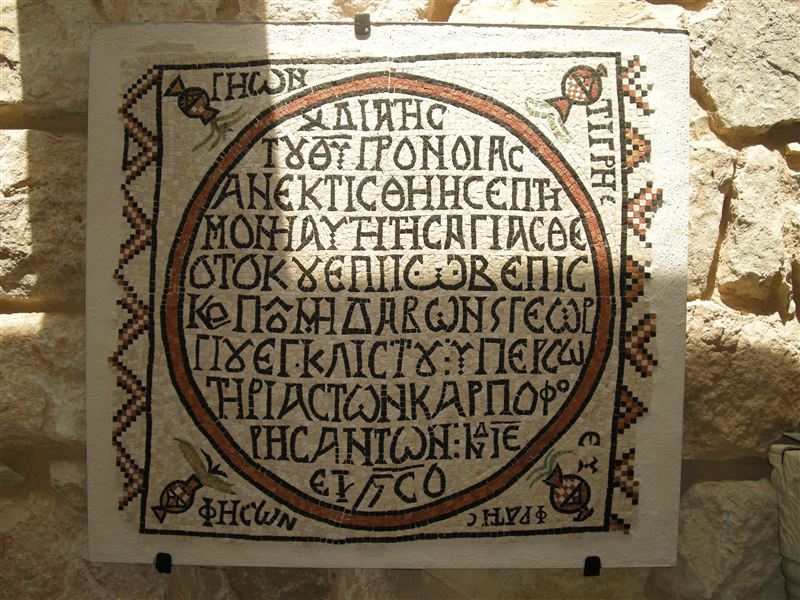 ΓΗΩΝ
ΤΙΓΡΗϹ
ΔΙΑΤΗϹ
ΤȢΘΥ ΠΡΟΝΟΙΑϹ
ΑΝΕΚΤΙϹΘΗΗϹΕΠΤΗ
ΜΟΝΗΑΥΤΗΤΗϹΑΓΙΑϹΘΕ
ΟΤΟΚȢΕΠΙΙΩΒΕΠΙϹ
ΚΟΠȢΜΗΔΑΒΩΝSΓΕΩΡ
ΓΙȢΕΓΚΛΙϹΤȢ:ΥΠΕΡϹΩ
ΤΗΡΙΑϹΤΩΝΚΑΡΠΟΦΟ
ΡΗϹΑΝΤΩΝ:
ΦΗϹΩΝ
ΕΥ
ΦΡΑΤΗϹ